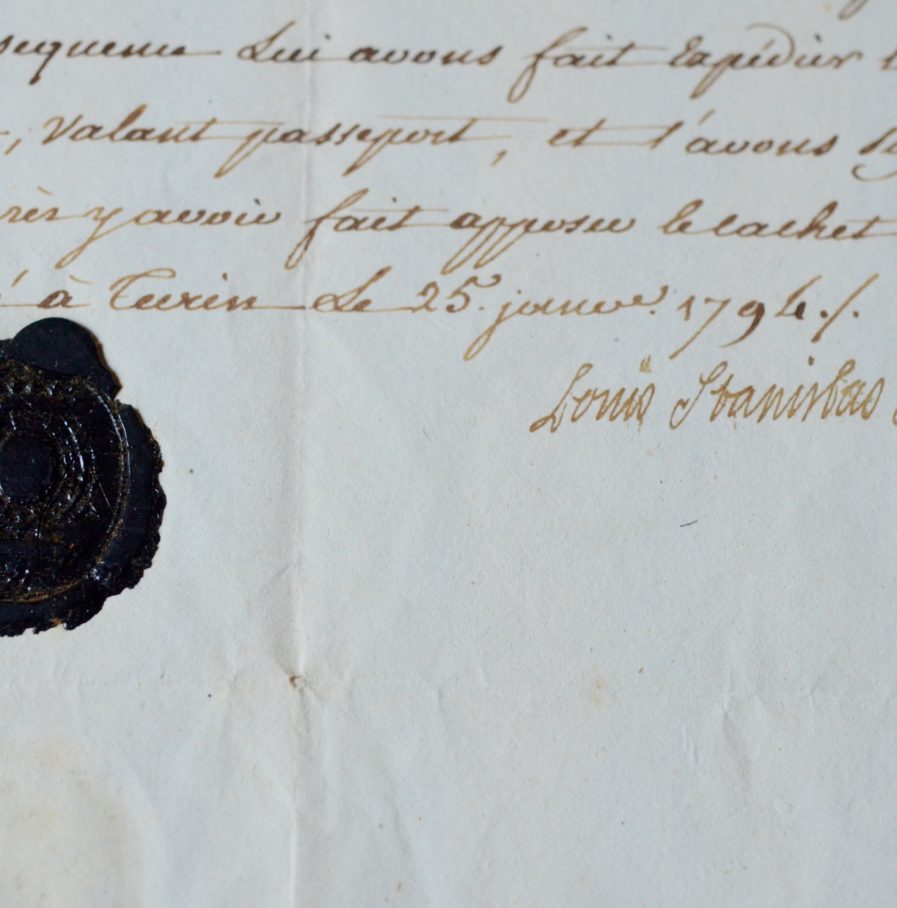 sequence Lui avons fait Expédier
, valant passeport, et l'avons
y avoir fait apposer le cachet
à Turin Le 25. janvr. 1794./.
Louis Stanislas